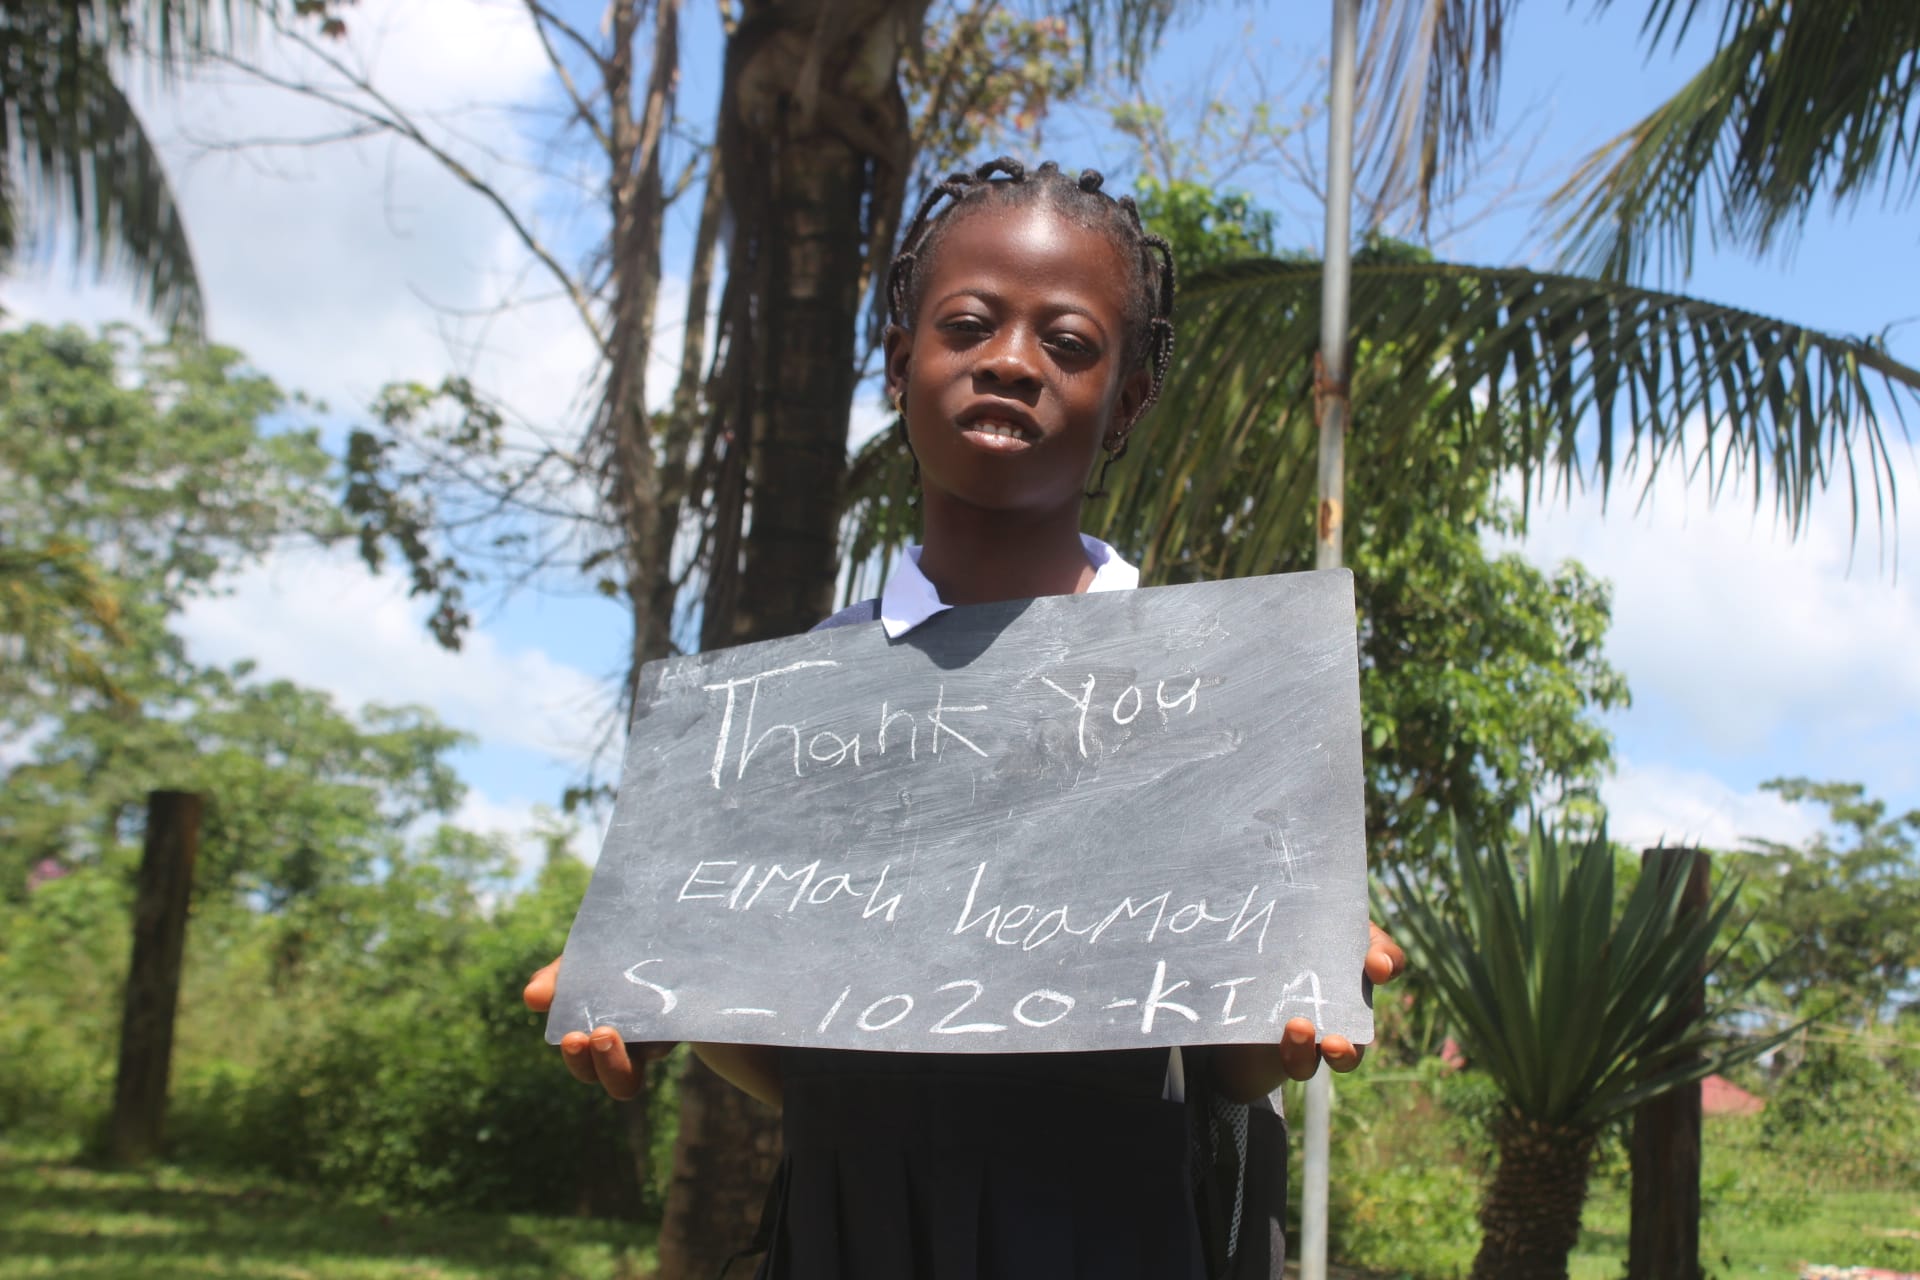 Thank You
ElMah heaMah
S-1020-KIA